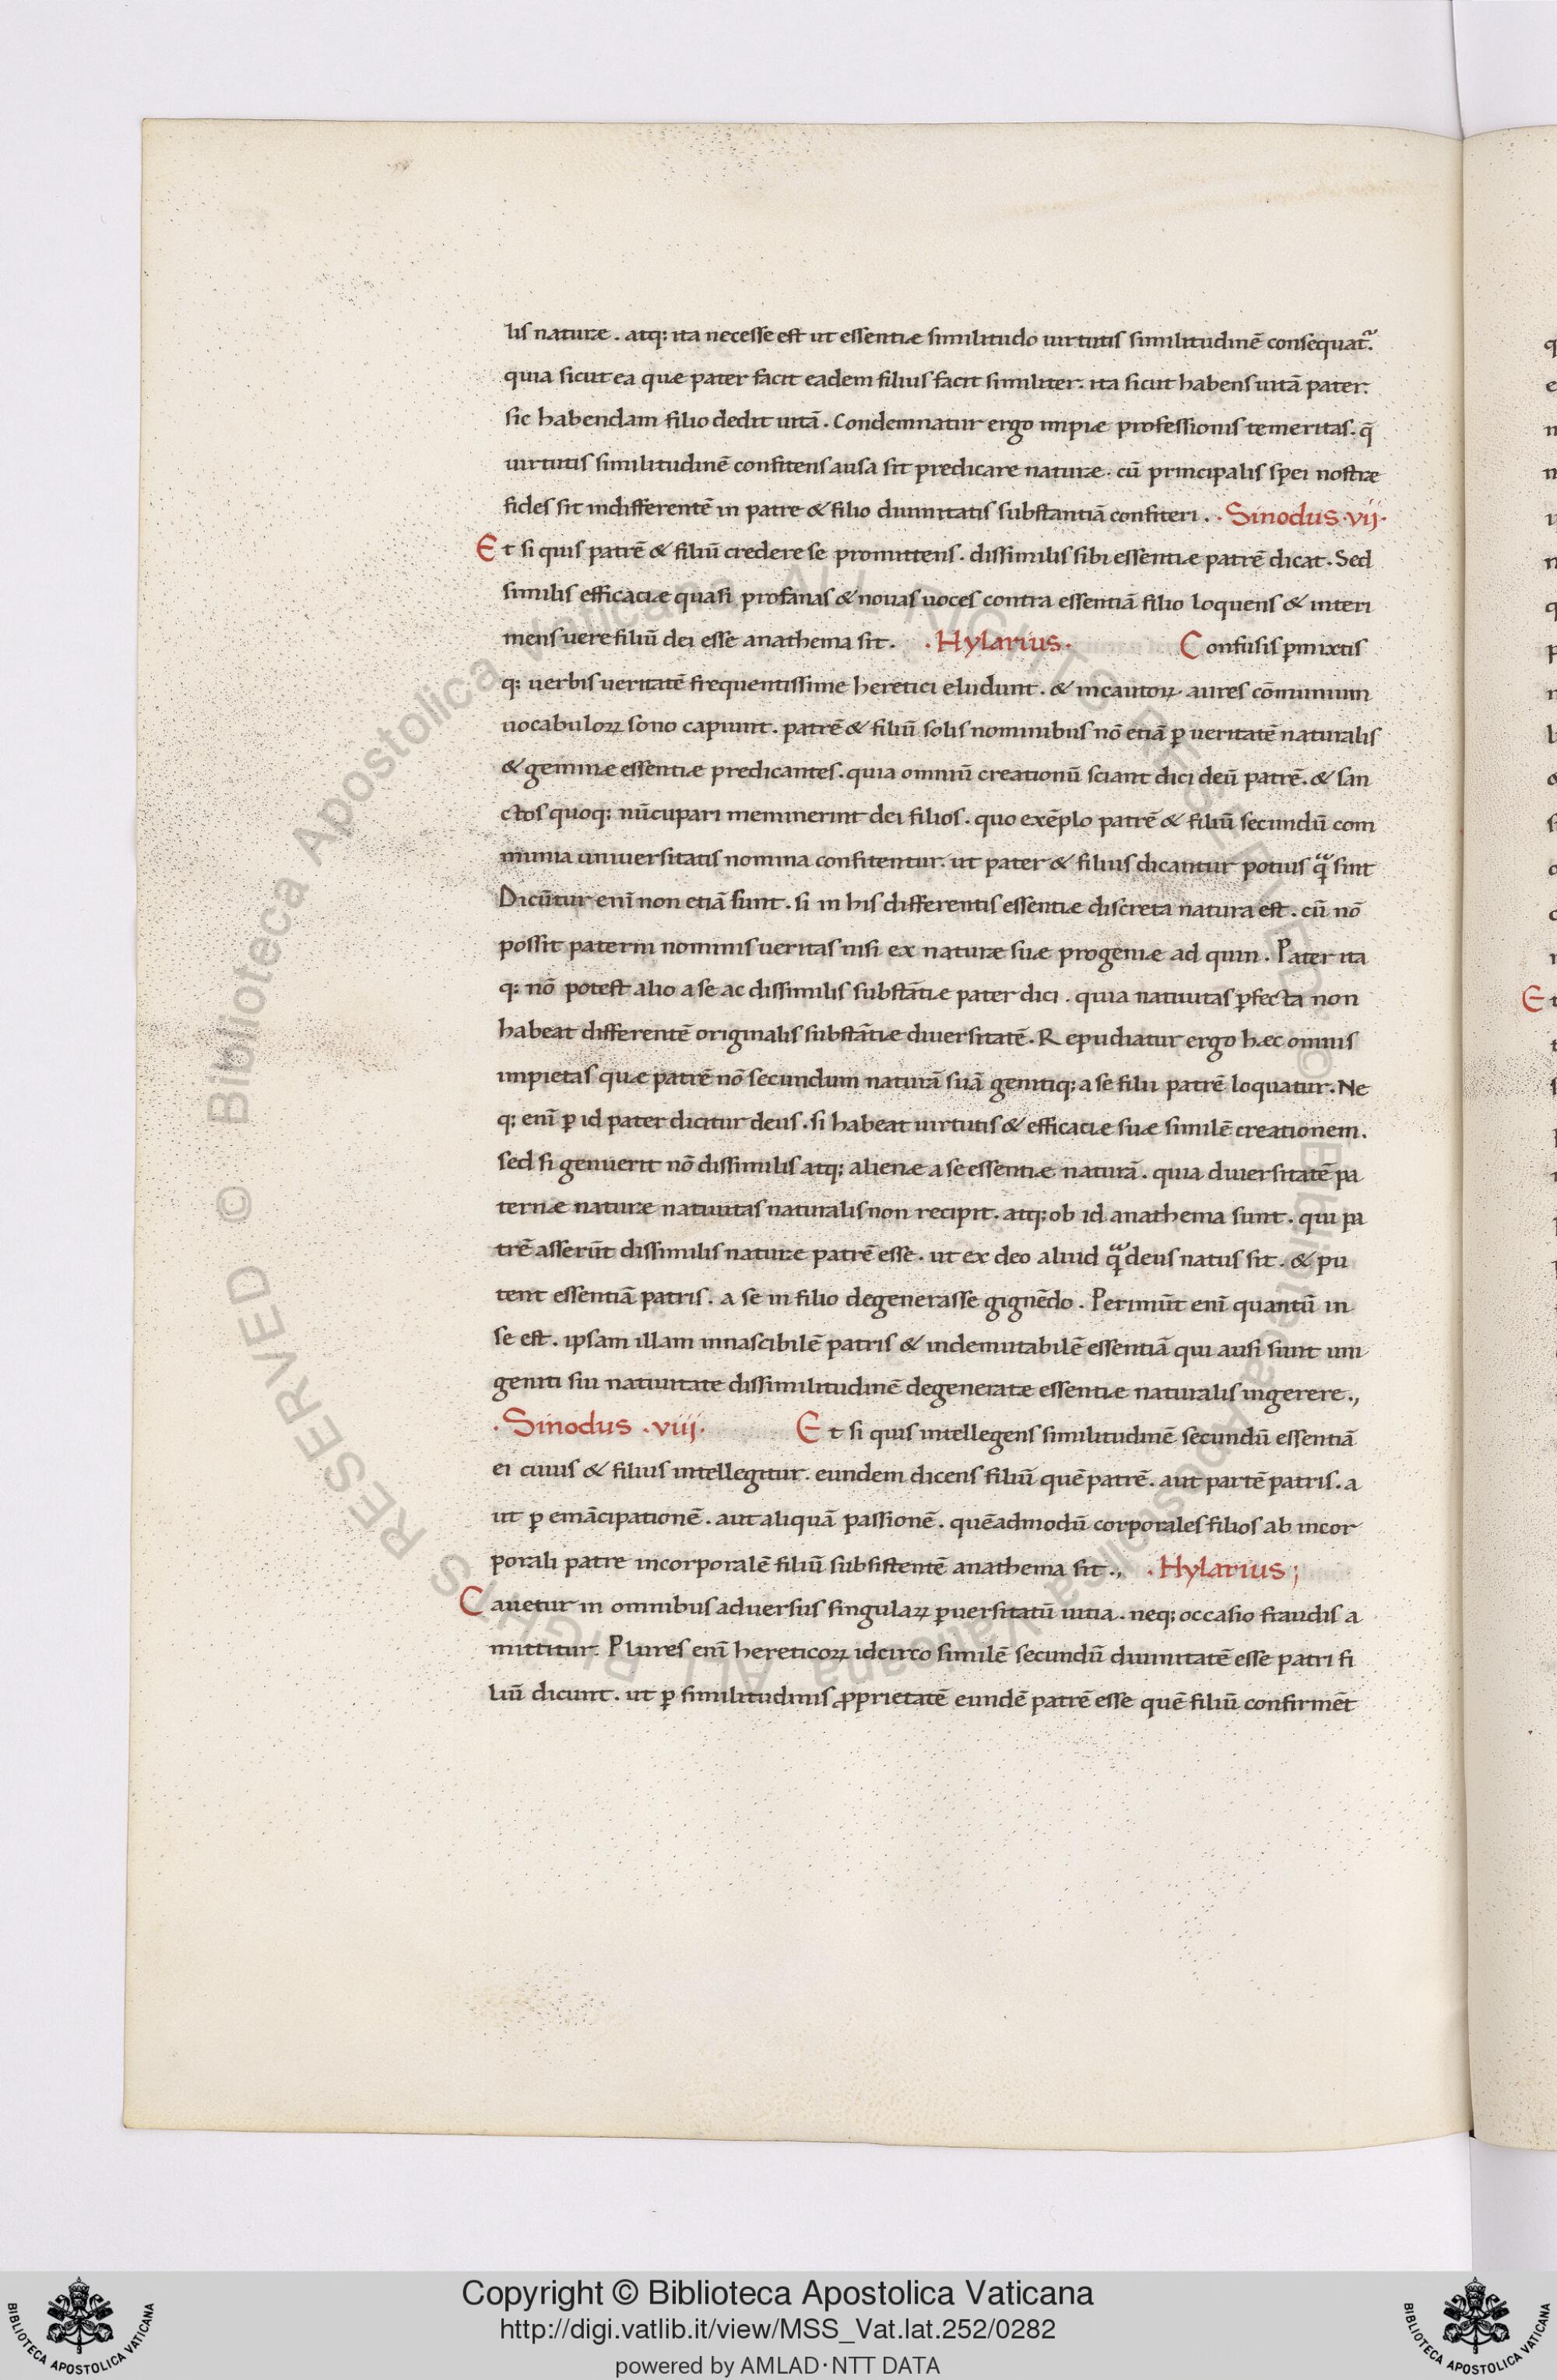 lis naturæ. atq; ita necesse est ut essentiæ similitudo uirtutis similitudinē consequat᷑.
quia sicut ea quæ pater facit eadem filius facit similiter. ita sicut habens uitā pater.
sic habendam filio dedit uitā. Condemnatur ergo impiæ professionis temeritas. q̄
uirtutis similitudinē confitens ausa sit predicare naturæ. cū principalis spei nostræ
fides sit indifferentē in patre & filio diuinitatis substantiā confiteri. · Sinodus · vij ·
Et si quis patrē & filiū credere se promittens. dissimilis sibi essentiæ patrē dicat. Sed
similis efficaciæ quasi profanas & nouas uoces contra essentiā filio loquens & interi
mens uere filiū dei esse anathema sit. · Hylarius · Confusis ꝑmixtis
q; uerbis ueritatē frequentissime heretici eludunt. & incautoꝝ aures cōmunium
uocabuloꝝ sono capiunt. patrē & filiū solis nominibus nō etiā ꝑ ueritatē naturalis
& geminæ essentiæ predicantes. quia omniū creationū sciant dici deū patrē. & san
ctos quoq; nūcupari meminerint dei filios. quo exēplo patrē & filiū secundū com
munia uniuersitatis nomina confitentur. ut pater & filius dicantur potius q̄ᵃ sint
Dicūtur enī non etiā sunt. si in his differentis essentiæ discreta natura est. cū nō
possit paterni nominis ueritas nisi ex naturæ suæ progeniæ ad quiri. Pater ita
q; nō potest alio a se ac dissimilis substātiæ pater dici. quia natiuitas ꝑfecta non
habeat differentē originalis substātiæ diuersitatē. Repudiatur ergo hæc omnis
impietas quæ patrē nō secundum naturā suā genitiq; a se filii patrē loquatur. Ne
q; enī ꝑ id pater dicitur deus. si habeat uirtutis & efficaciæ suæ similē creationem.
sed si genuerit nō dissimilis atq; alienæ a se essentiæ naturā. quia diuersitatē pa
ternæ naturæ natiuitas naturalis non recipit. atq; ob id anathema sunt. qui pa
trē asserūt dissimilis naturæ patrē esse. ut ex deo aliud q̄ᵃ deus natus sit. & pu
tent essentiā patris. a se in filio degenerasse gignēdo. Perimūt enī quantū in
se est. ipsam illam innascibilē patris & indemutabilē essentiā qui ausi sunt uni
geniti sui natiuitate dissimilitudinē degeneratæ essentiæ naturalis ingerere.,
· Sinodus · viij · Et si quis intellegens similitudinē secundū essentiā
ei cuius & filius intellegitur. eundem dicens filiū quē patrē. aut partē patris. a
ut ꝑ emācipationē. aut aliquā passionē. quēadmodū corporales filios ab incor
porali patre incorporalē filiū subsistentē anathema sit., · Hylarius ;
Cauetur in omnibus aduersus singulaꝝ ꝑuersitatū uitia. neq; occasio fraudis a
mittitur. Plures enī hereticoꝝ idcirco similē secundū diuinitatē esse patri fi
liū dicunt. ut ꝑ similitudinis ꝓprietatē eundē patrē esse quē filiū confirmēt
Copyright © Biblioteca Apostolica Vaticana
http://digi.vatlib.it/view/MSS_Vat.lat.252/0282
powered by AMLAD·NTT DATA
BIBLIOTECA APOSTOLICA VATICANA
BIBLIOTECA APOSTOLICA VATICANA